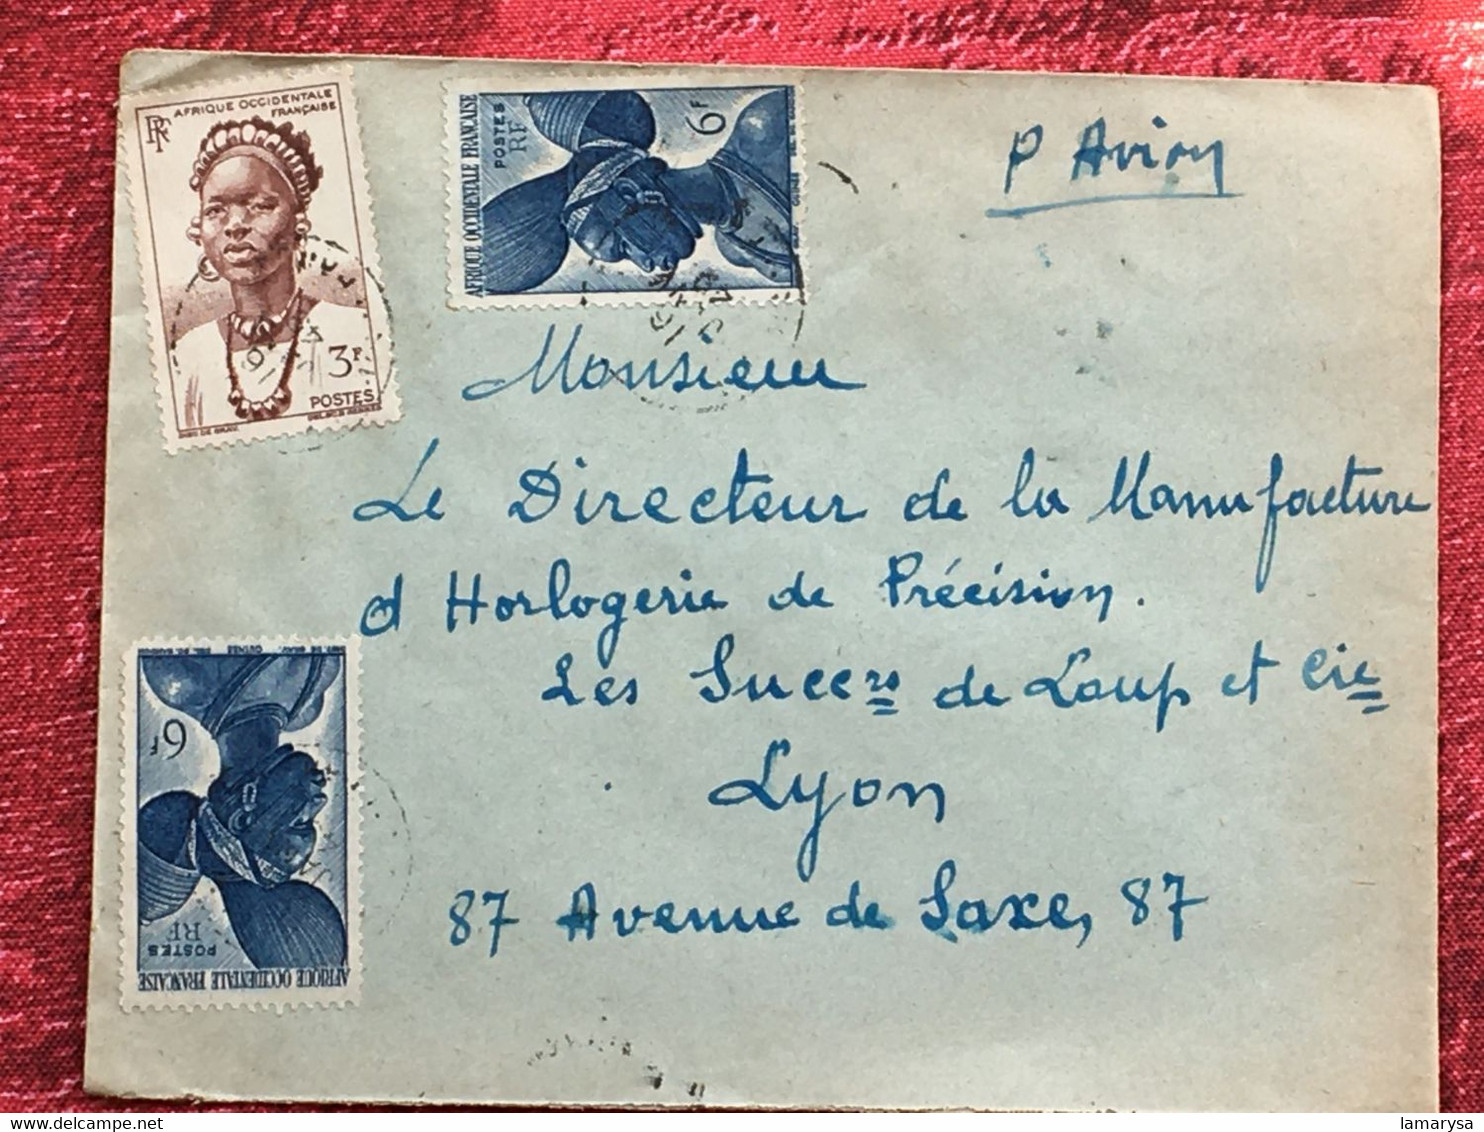 AFRIQUE OCCIDENTALE
FRANÇAISE
RF
3F
POSTES
AFRIQUE OCCIDENTALE FRANÇAISE
POSTES
RF
6F
P Avion
Monsieur
Le Directeur de la Manufacture
d Horlogerie de Précision.
Les Succrs de Loup et Cie
Lyon
87 Avenue de Saxe, 87
6F
POSTES
RF
AFRIQUE OCCIDENTALE FRANÇAISE
lamarysa